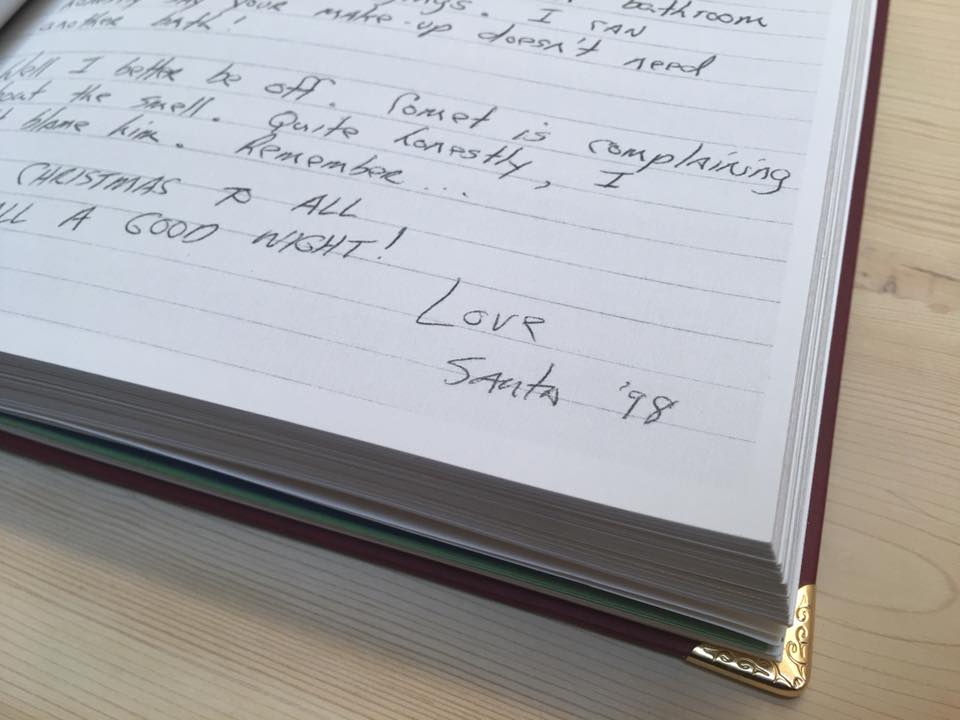 bathroom
ngs. I can
honestly say your make-up doesn't need
another bath!
Well I better be off. Comet is complaining
about the smell. Quite honestly, I
t blame him. Remember...
CHRISTMAS TO ALL
ALL A GOOD NIGHT!
Love
Santa '98